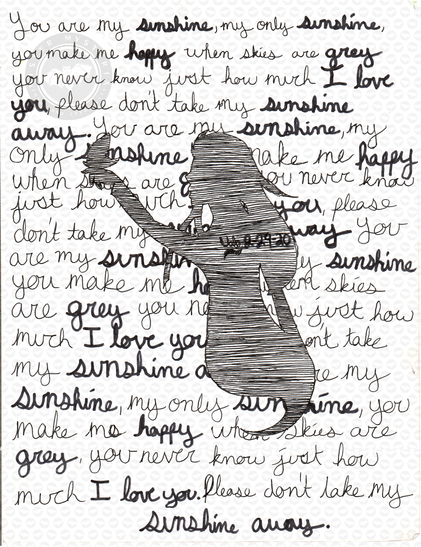 You are my sunshine, my only sunshine,
you make me happy when skies are grey
you never know just how much I love
you, please don't take my sunshine
away. You are my sunshine, my
only sunshine make me happy
when skies are you never know
just how much you, please
don't take my away You
are my sunshine my sunshine
you make me skies
are grey you now just how
much I love you don't take
my sunshine are my
sunshine, my only sunshine, you
make me happy when skies are
grey, you never know just how
much I love you. Please don't take my
sunshine away.